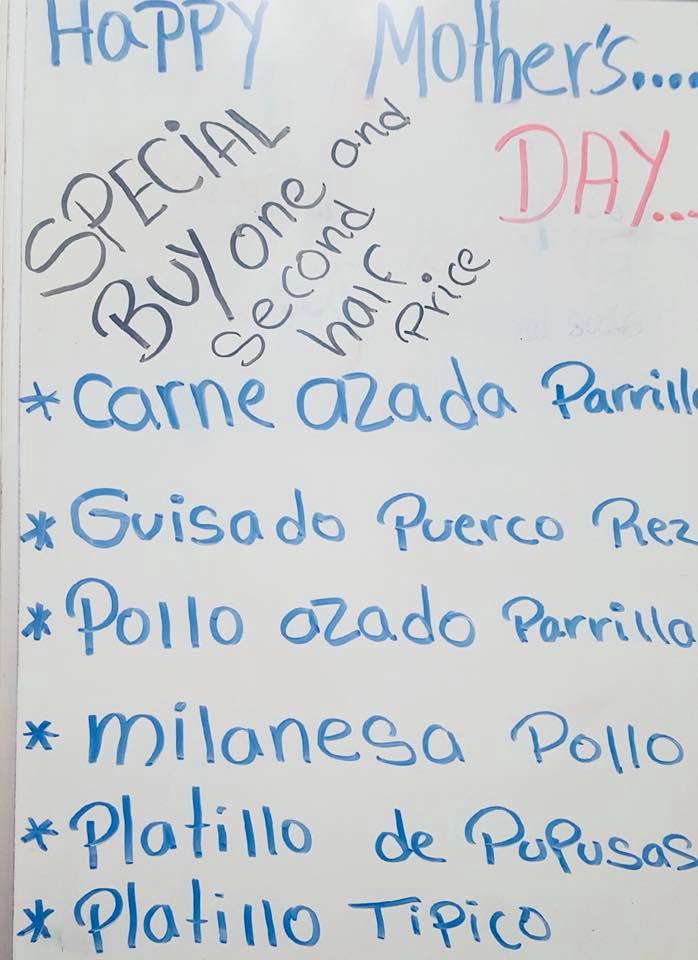 HaPPY Mother's....
DAY...
SPECiAL
BUY one and
second
half
Price
* Carne azada Parrilla
* Guisado Puerco Rez
* Pollo azado Parrilla
* milanesa Pollo
* Platillo de Pupusas
* Platillo Tipico